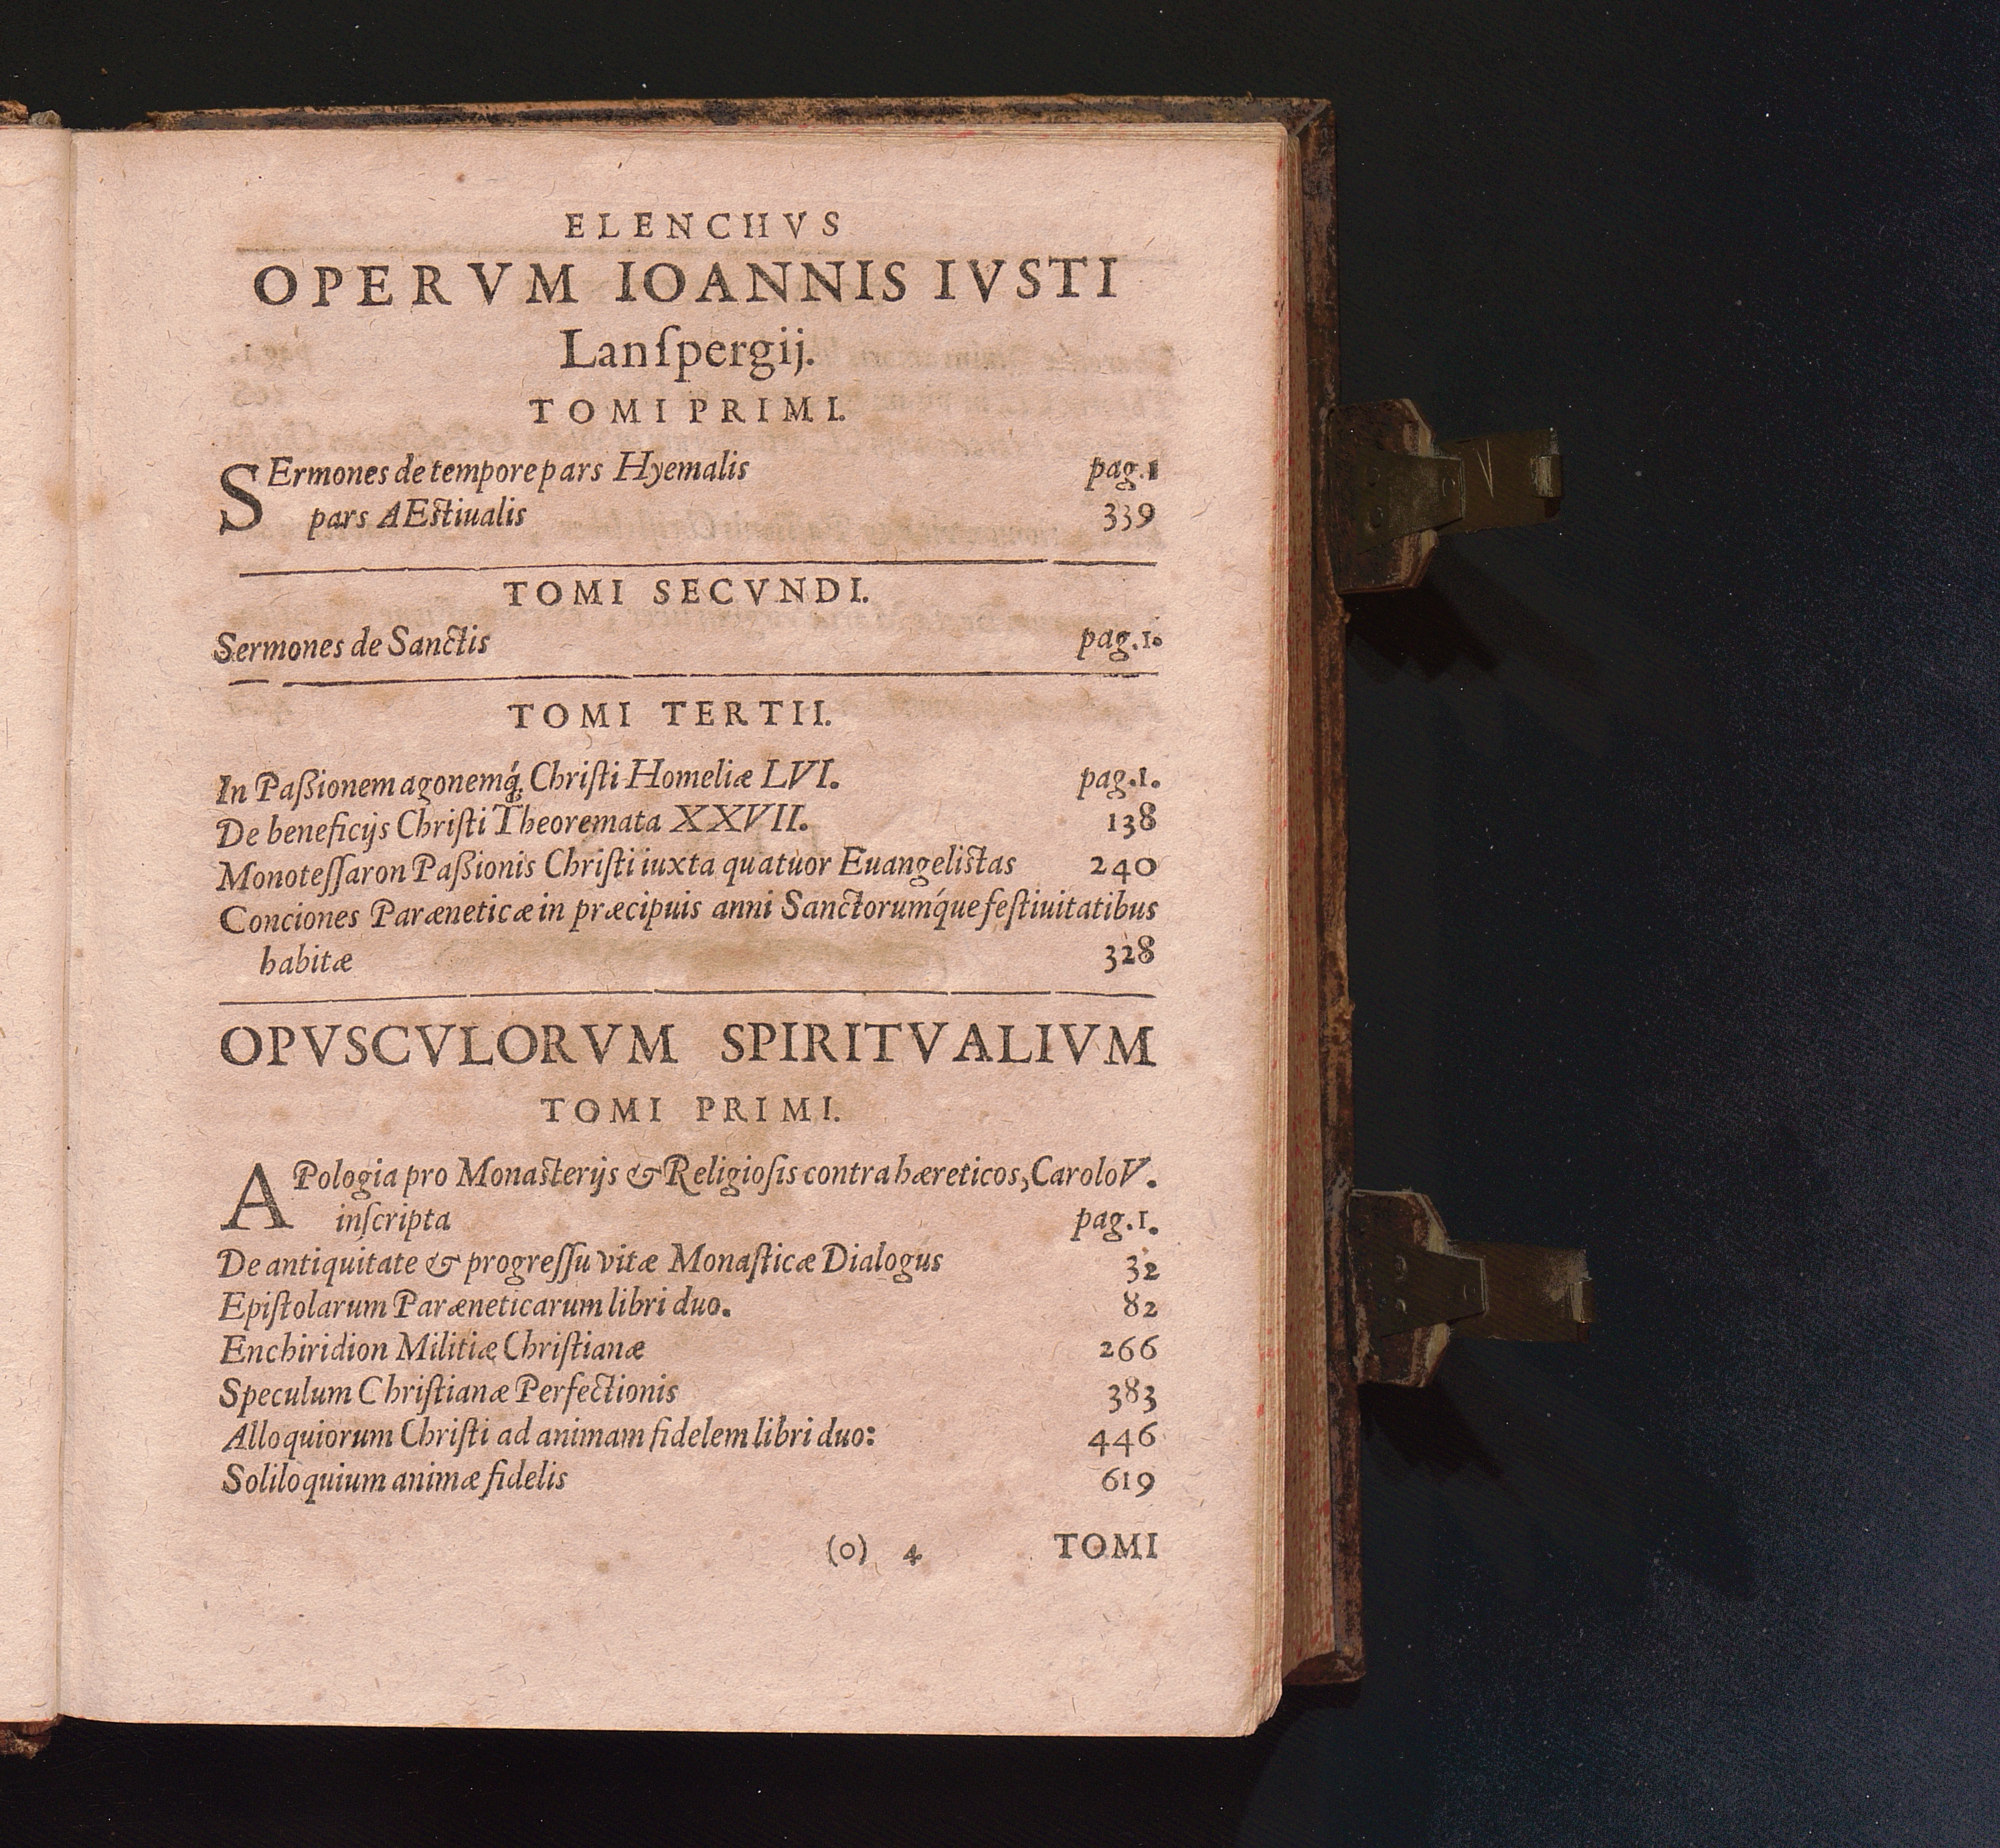 ELENCHVS
OPERVM IOANNIS IVSTI
Lanſpergij.
TOMI PRIMI.
SErmones de tempore pars Hyemalis pag. 1
pars AEstiualis 339
TOMI SECVNDI.
Sermones de Sanctis pag. 1.
TOMI TERTII.
In Paßionem agonemq́; Chriſti Homeliæ LVI. pag. 1.
De beneficijs Chriſti Theoremata XXVII. 138
Monoteſſaron Paßionis Chriſti iuxta quatuor Euangelistas 240
Conciones Paræneticæ in præcipuis anni Sanctorumq́ue feſtiuitatibus
habitæ 328
OPVSCVLORVM SPIRITVALIVM
TOMI PRIMI.
APologia pro Monasterijs & Religioſis contra hæreticos, Carolo V.
inſcripta pag. 1.
De antiquitate & progreſſu vitæ Monaſticæ Dialogus 32
Epiſtolarum Paræneticarum libri duo. 82
Enchiridion Militiæ Chriſtianæ 266
Speculum Chriſtianæ Perfectionis 383
Alloquiorum Chriſti ad animam fidelem libri duo: 446
Soliloquium animæ fidelis 619
(o) 4 TOMI